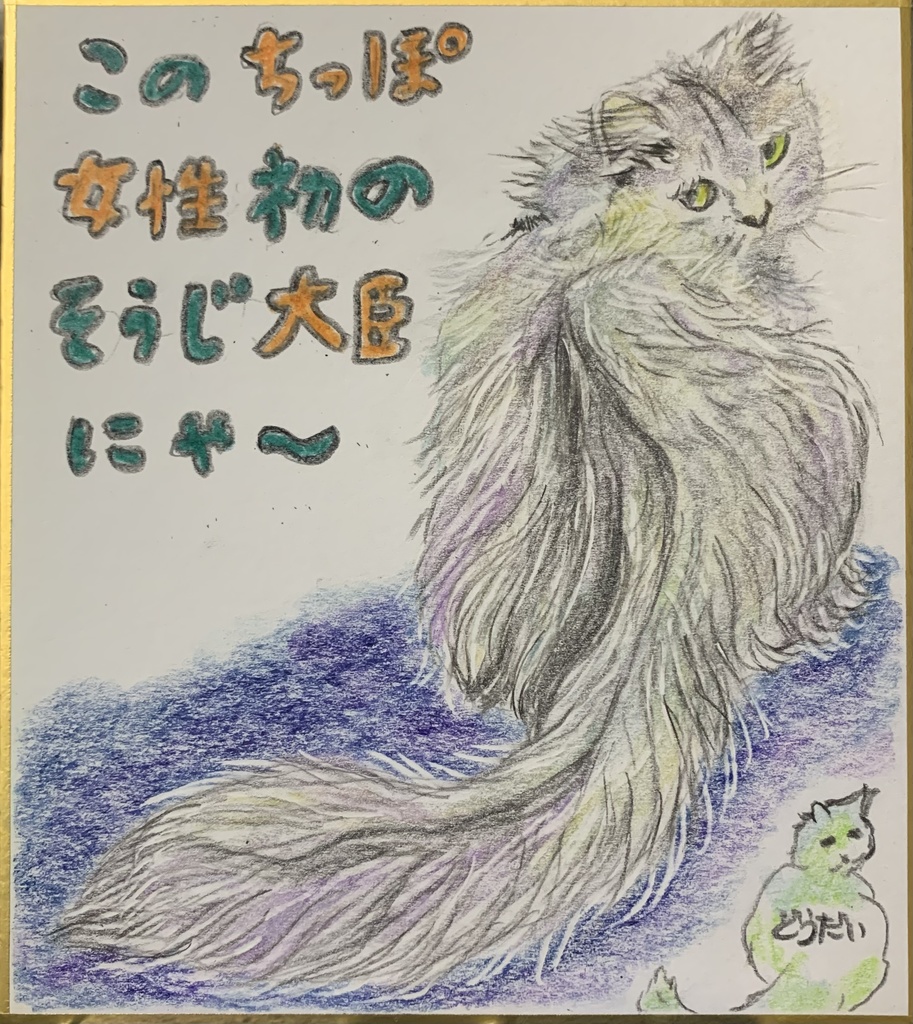 このちっぽ
女性初の
そうじ大臣
にゃ〜
どうだい